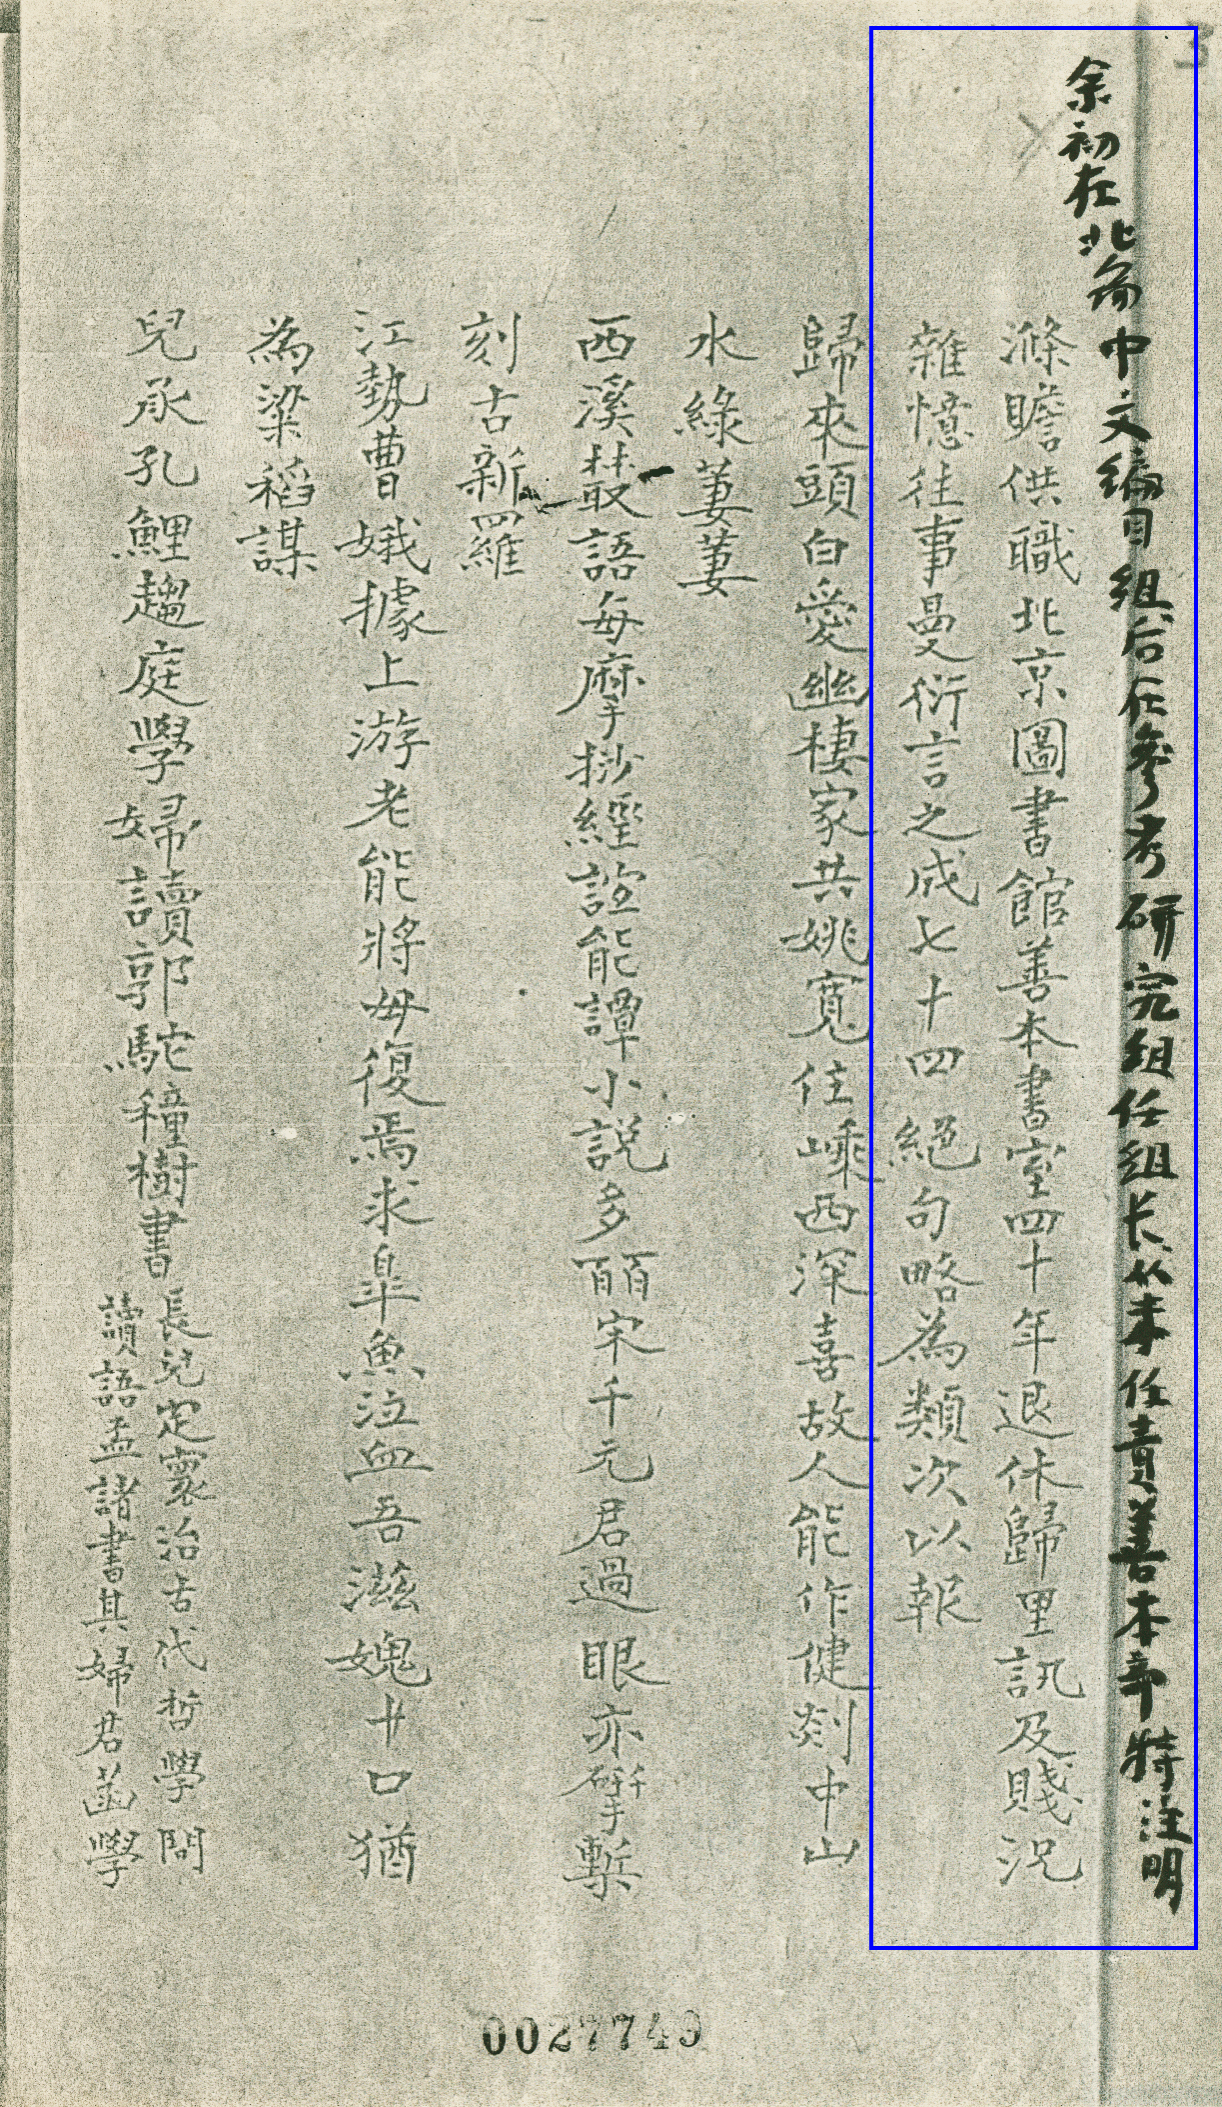 余初在北图中文编目组后任参考研究组任组长从未任责善本部特注明
滌瞻供職北京圖書館善本書室四十年退休歸里訊及賤況
雜憶往事曼衍言之成七十四絕句略為類次以報
歸來頭白愛幽棲家共姚寬住嵊西深喜故人能作健剡中山
水綠萋萋
西溪叢語每摩挱經誼能譚小說多頧宋千元君過眼亦揅槧
刻古新羅
江勢曹娥據上游老能將母復焉求皐魚泣血吾滋媿廿口猶
為粱稻謀
兒承孔鯉趨庭學婦讀郭駝穜樹書
長兒定寰治古代哲學問
讀語孟諸書其婦君菡學
女討郭
0027749